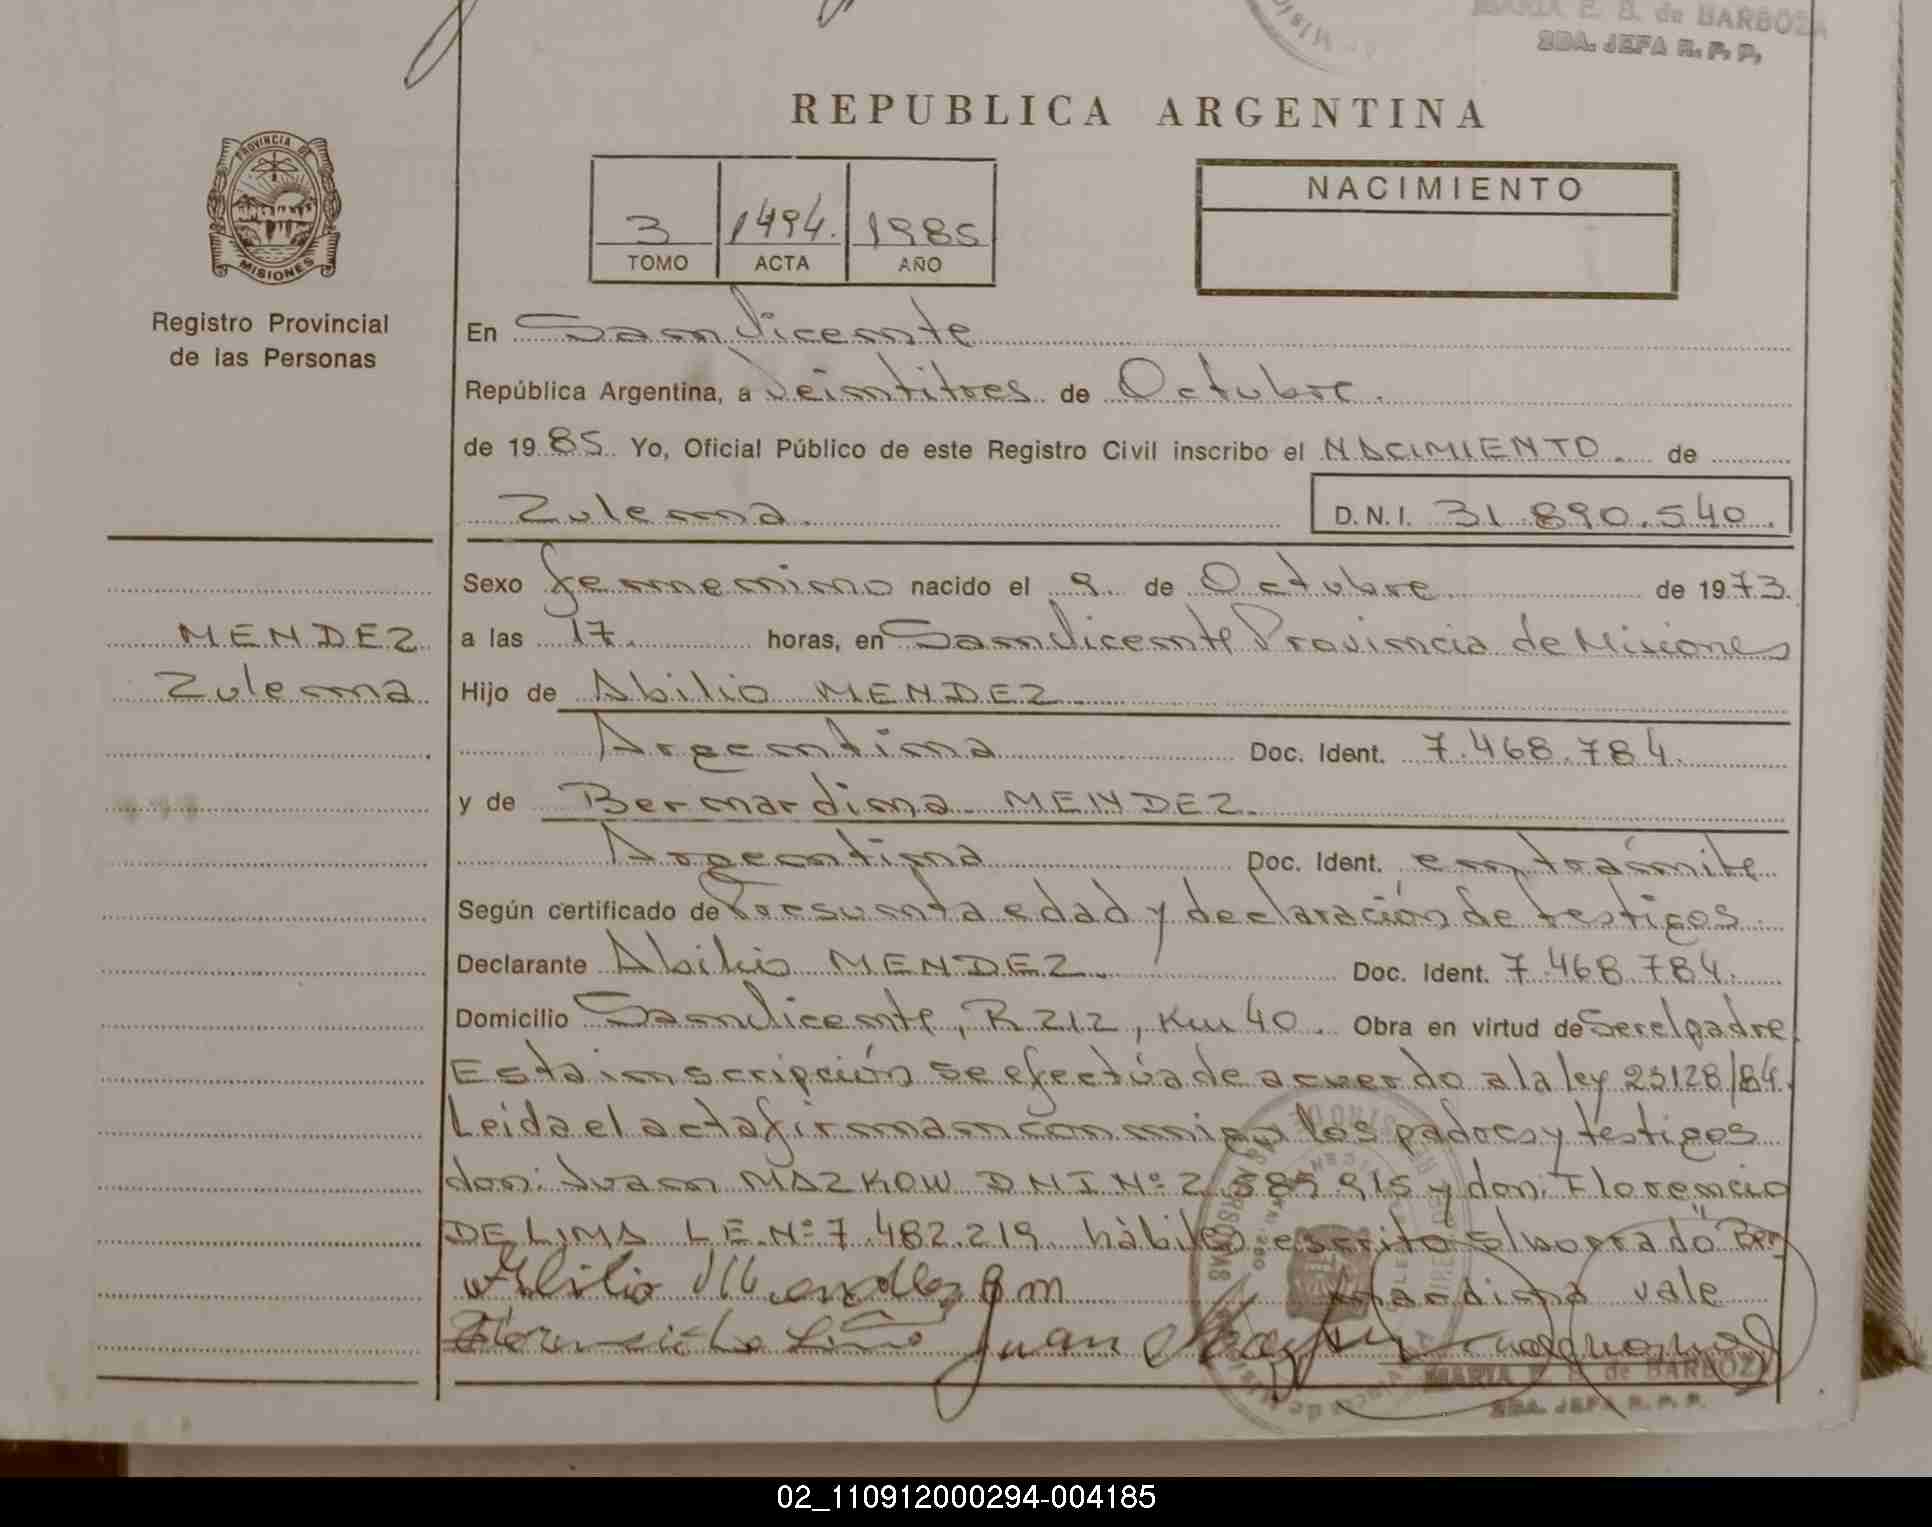 MARIA E. B. de BARBOZA
2DA. JEFA R. P. P.
REPUBLICA ARGENTINA
PROVINCIA DE
MISIONES
Registro Provincial
de las Personas
3 1494. 1985
TOMO ACTA AÑO
NACIMIENTO
En San Vicente
República Argentina, a Veintitres de Octubre.
de 19 85. Yo, Oficial Público de este Registro Civil inscribo el NACIMIENTO. de
Zulema. D.N.I. 31.890.540.
Sexo femenino nacido el 9 de Octubre de 1973.
MENDEZ
Zulema
a las 17. horas, en San Vicente Provincia de Misiones
Hijo de Abilio MENDEZ.
Argentina Doc. Ident. 7.468.784.
y de Bernardina MENDEZ.
Argentina Doc. Ident. en trámite
Según certificado de Presunta edad y declaración de testigos.
Declarante Abilio MENDEZ. Doc. Ident. 7.468.784.
Domicilio San Vicente, R 212, Km 40. Obra en virtud de Ser el padre.
Esta inscripción se efectúa de acuerdo a la ley 23128/84.
Leida el acta firman conmigo los padres y testigos
don: Juan MAZKOW DNI Nº 2.585.915 y don: Florencio
DE LIMA L.E. Nº 7.482.219 hàbiles escrito s/borrado "Ber
nardina vale
Abilio Mendez B m
Juan
MARIA E. B. de BARBOZA
2DA. JEFA R. P. P.
02_110912000294-004185